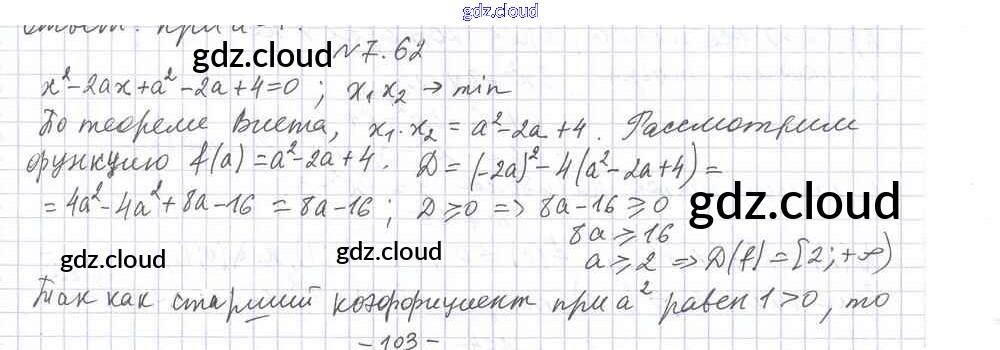 gdz.cloud
Ответ: при
gdz.cloud
№ 7.62
x² - 2ax + a² - 2a + 4 = 0 ; x₁x₂ → min
По теореме Виета, x₁·x₂ = a² - 2a + 4. Рассмотрим
функцию f(a) = a² - 2a + 4. D = (-2a)² - 4(a² - 2a + 4) =
= 4a² - 4a² + 8a - 16 = 8a - 16 ; D ≥ 0 => 8a - 16 ≥ 0
gdz.cloud
8a ≥ 16
gdz.cloud
gdz.cloud
a ≥ 2 => D(f) = [2; +∞)
Так как старший коэффициент при a² равен 1 > 0, то
- 103 -